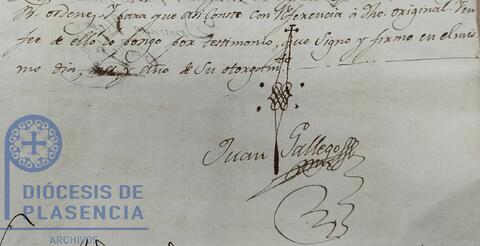 ordene, Y para que asi Conste con Referencia à dho. original. Yen
fee de ello lo pongo por testimonio, que Signo y firmo en el mis
mo dia, mes y año de Su otorgam.to
Juan Gallego
DIÓCESIS DE
PLASENCIA
ARCHIVOS